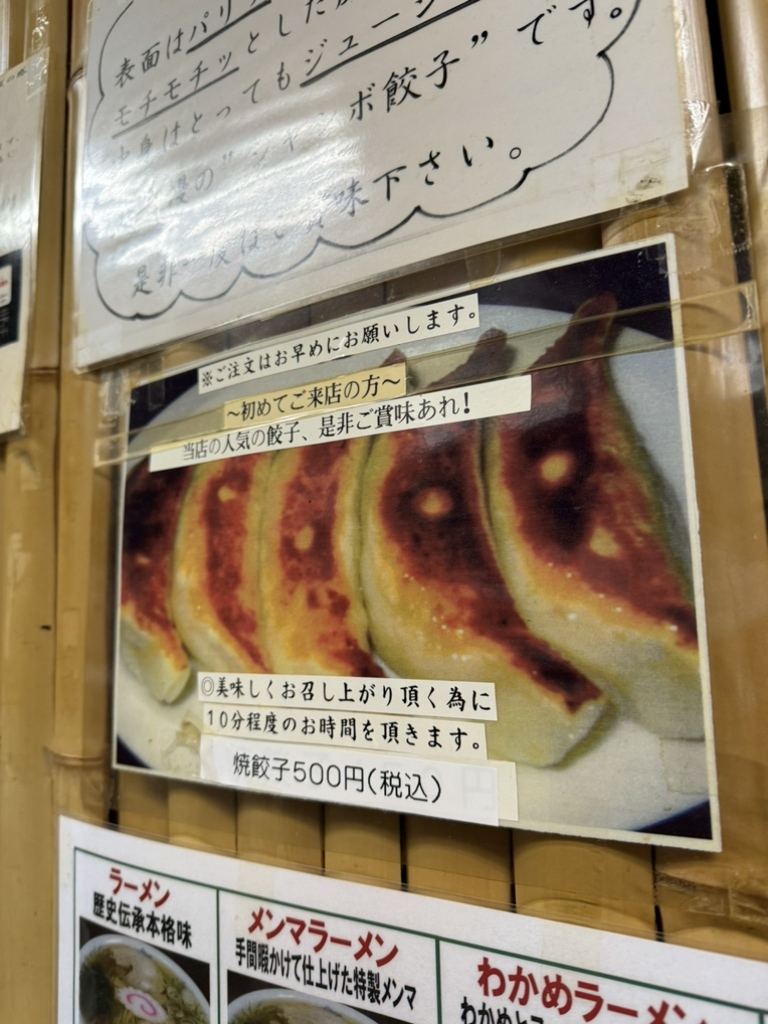 表面はパリ
モチモチッとした
中身はとってもジューシ
の"ジャンボ餃子"です。
是非一度ご賞味下さい。
※ご注文はお早めにお願いします。
～初めてご来店の方～
当店の人気の餃子、是非ご賞味あれ!
◎美味しくお召し上がり頂く為に
10分程度のお時間を頂きます。
焼餃子500円(税込)
ラーメン
歴史伝承本格味
メンマラーメン
手間暇かけて仕上げた特製メンマ
わかめラーメン
わかめと